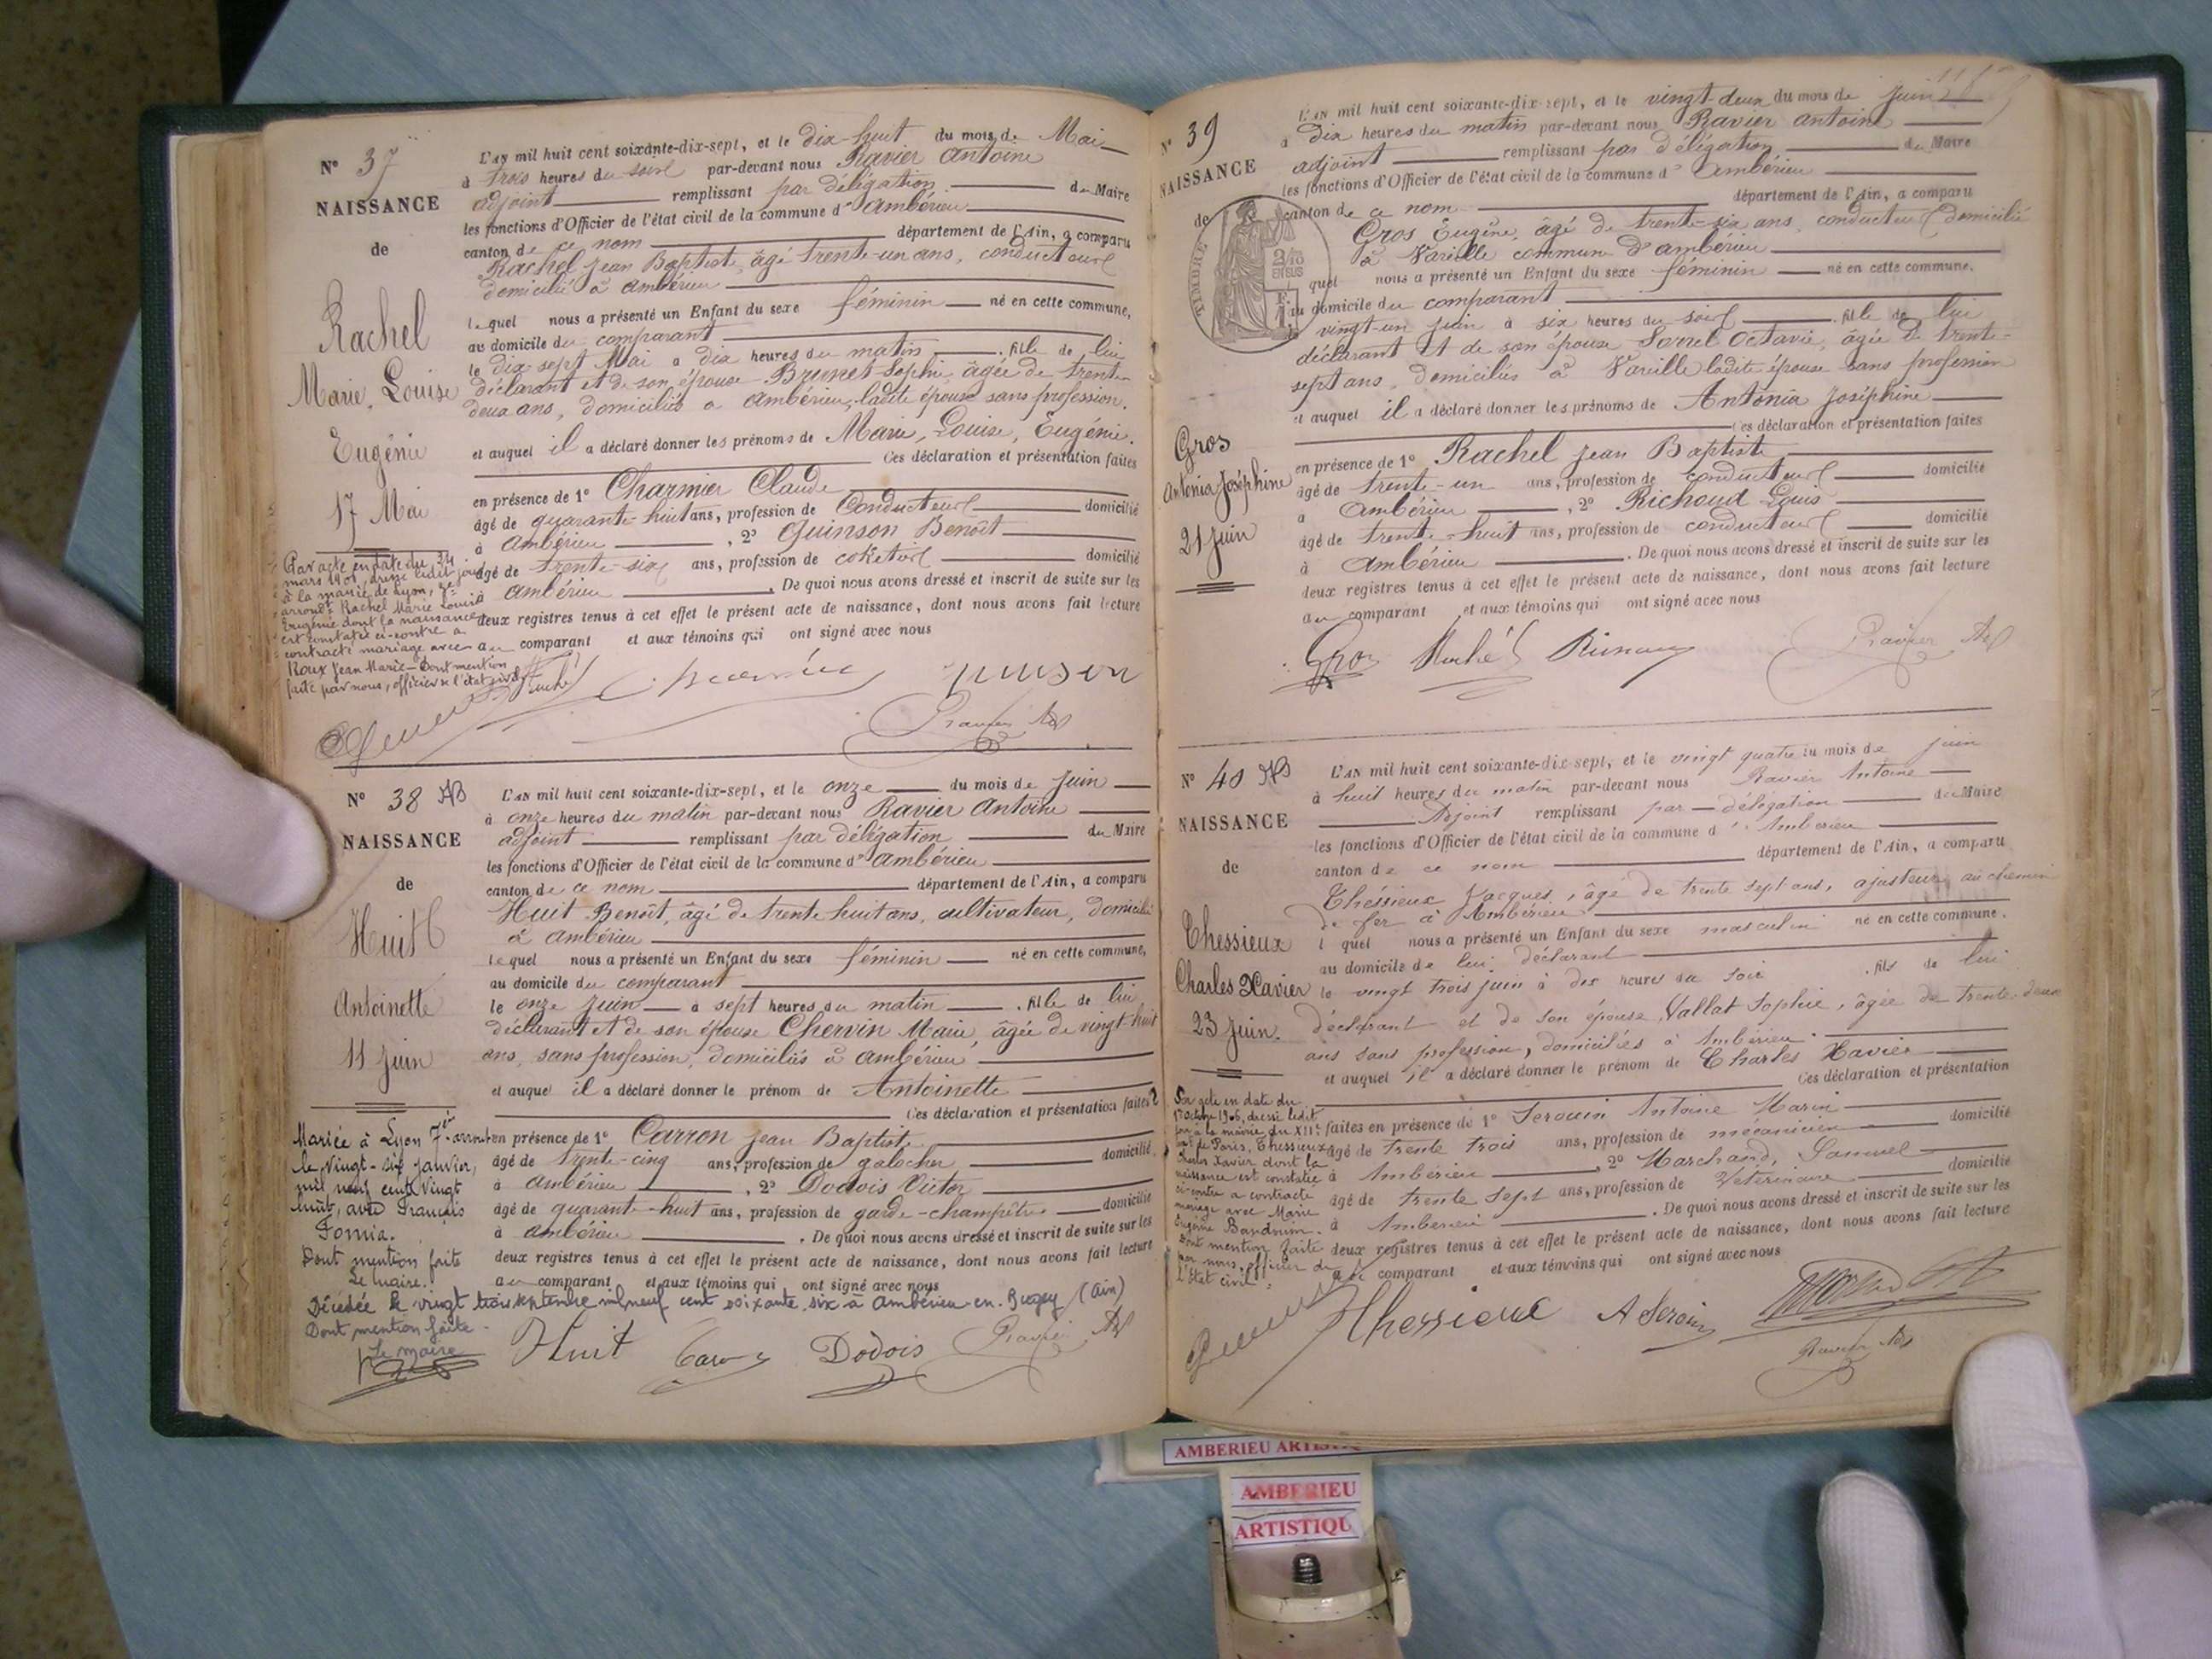 N° 37
NAISSANCE
de
Rachel
Marie, Louise
Eugénie
17 Mai
L'AN mil huit cent soixante-dix-sept, et le dix huit du mois de Mai
à trois heures du soir par-devant nous Ravier Antoine
adjoint remplissant par délégation du Maire
les fonctions d'Officier de l'état civil de la commune d' Ambérieu
canton de ce nom département de l'Ain, a comparu
Rachel Jean Baptist, âgé trente-un ans, conducteur
domicilié à Ambérieu
lequel nous a présenté un Enfant du sexe féminin né en cette commune,
au domicile du comparant
le dix sept Mai à dix heures du matin , fille de lui
déclarant et de son épouse Brunet Sophie, âgée de trente-
deux ans, domiciliés à Ambérieu, ladite épouse sans profession.
et auquel il a déclaré donner les prénoms de Marie, Louise, Eugénie.
Ces déclaration et présentation faites
en présence de 1° Charmier Claude
âgé de quarante-huit ans, profession de Conducteur domicilié
à Ambérieu , 2° Quinson Benoît
âgé de trente-six ans, profession de coketier domicilié
à Ambérieu . De quoi nous avons dressé et inscrit de suite sur les
deux registres tenus à cet effet le présent acte de naissance, dont nous avons fait lecture
au comparant et aux témoins qui ont signé avec nous
Par acte en date du 24
mars 1901, dressé ledit jour
à la mairie de Lyon,
arrondt Rachel Marie Louise
Eugénie dont la naissance
est constatée ci-contre a
contracté mariage avec
Roux Jean Marie - Dont mention
faite par nous, officier de l'état civil
N° 38 AB
NAISSANCE
de
Huit
Antoinette
11 Juin
L'AN mil huit cent soixante-dix-sept, et le onze du mois de Juin
à onze heures du matin par-devant nous Ravier Antoine
adjoint remplissant par délégation du Maire
les fonctions d'Officier de l'état civil de la commune d' Ambérieu
canton de ce nom département de l'Ain, a comparu
Huit Benoît, âgé de trente huit ans, cultivateur, domicilié
à Ambérieu
lequel nous a présenté un Enfant du sexe féminin né en cette commune,
au domicile du comparant
le onze Juin à sept heures du matin , fille de lui
déclarant et de son épouse Chervin Marie, âgée de vingt-huit
ans, sans profession, domiciliés à Ambérieu
et auquel il a déclaré donner le prénom de Antoinette
Ces déclaration et présentation faites
en présence de 1° Carron Jean Baptiste
âgé de trente-cinq ans, profession de galocher domicilié
à Ambérieu , 2° Dodois Victor
âgé de quarante-huit ans, profession de garde-champêtre domicilié
à Ambérieu . De quoi nous avons dressé et inscrit de suite sur les
deux registres tenus à cet effet le présent acte de naissance, dont nous avons fait lecture
au comparant et aux témoins qui ont signé avec nous
Mariée à Lyon 7e arront
le vingt-six janvier,
mil neuf cent vingt
huit, avec François
Fomia.
Dont mention faite
Le maire.
Décédée le vingt trois septembre mil neuf cent soixante six à Ambérieu-en-Bugey (Ain)
Dont mention faite
Le maire
Huit Dodois
N° 39
NAISSANCE
de
TIMBRE
2/10
EN SUS
Gros
Antonia Joséphine
21 Juin
L'AN mil huit cent soixante-dix-sept, et le vingt-deux du mois de juin
à Dix heures du matin par-devant nous Ravier Antoine
adjoint remplissant par délégation du Maire
les fonctions d'Officier de l'état civil de la commune d' Ambérieu
canton de ce nom département de l'Ain, a comparu
Gros Eugène, âgé de trente-six ans, conducteur domicilié
à Vareille commune d'Ambérieu
quel nous a présenté un Enfant du sexe féminin né en cette commune.
au domicile du comparant
vingt-un juin à six heures du soir , fille de lui
déclarant et de son épouse Sorrel Octavie, âgée de trente-
sept ans, domiciliés à Vareille ladite épouse sans profession
et auquel il a déclaré donner les prénoms de Antonia Joséphine
Ces déclaration et présentation faites
en présence de 1° Rachel Jean Baptiste
âgé de trente-un ans, profession de conducteur domicilié
à Ambérieu , 2° Richoud Louis
âgé de trente-huit ans, profession de conducteur domicilié
à Ambérieu . De quoi nous avons dressé et inscrit de suite sur les
deux registres tenus à cet effet le présent acte de naissance, dont nous avons fait lecture
au comparant et aux témoins qui ont signé avec nous
Gros Ravier
N° 40
NAISSANCE
de
Chessieux
Charles Xavier
23 Juin.
L'AN mil huit cent soixante-dix-sept, et le vingt quatre du mois de juin
à huit heures du matin par-devant nous Ravier Antoine
Adjoint remplissant par délégation du Maire
les fonctions d'Officier de l'état civil de la commune d' Ambérieu
canton de ce nom département de l'Ain, a comparu
Chessieux Jacques, âgé de trente sept ans, ajusteur au chemin
de fer à Ambérieu
l quel nous a présenté un Enfant du sexe masculin né en cette commune.
au domicile de lui déclarant
le vingt trois juin à dix heures du soir , fils de lui
déclarant et de son épouse Vallat Sophie, âgée de trente-deux
ans sans profession, domiciliés à Ambérieu
et auquel il a déclaré donner le prénom de Charles Xavier
Ces déclaration et présentation
faites en présence de 1° Serouin Antoine Marin
âgé de trente trois ans, profession de mécanicien domicilié
à Ambérieu , 2° Marchand, Samuel
âgé de trente sept ans, profession de Vétérinaire domicilié
à Ambérieu . De quoi nous avons dressé et inscrit de suite sur les
deux registres tenus à cet effet le présent acte de naissance, dont nous avons fait lecture
au comparant et aux témoins qui ont signé avec nous
Par acte en date du
octobre 1906, dressé ledit
jour à la mairie du XIIe
de Paris, Chessieux
Charles Xavier dont la
naissance est constatée
ci-contre a contracté
mariage avec Marie
Eugénie Baudouin.
Dont mention faite
par nous, officier de
l'état civil.
Chessieux A Serouin
AMBERIEU
AMBERIEU
ARTISTIQU